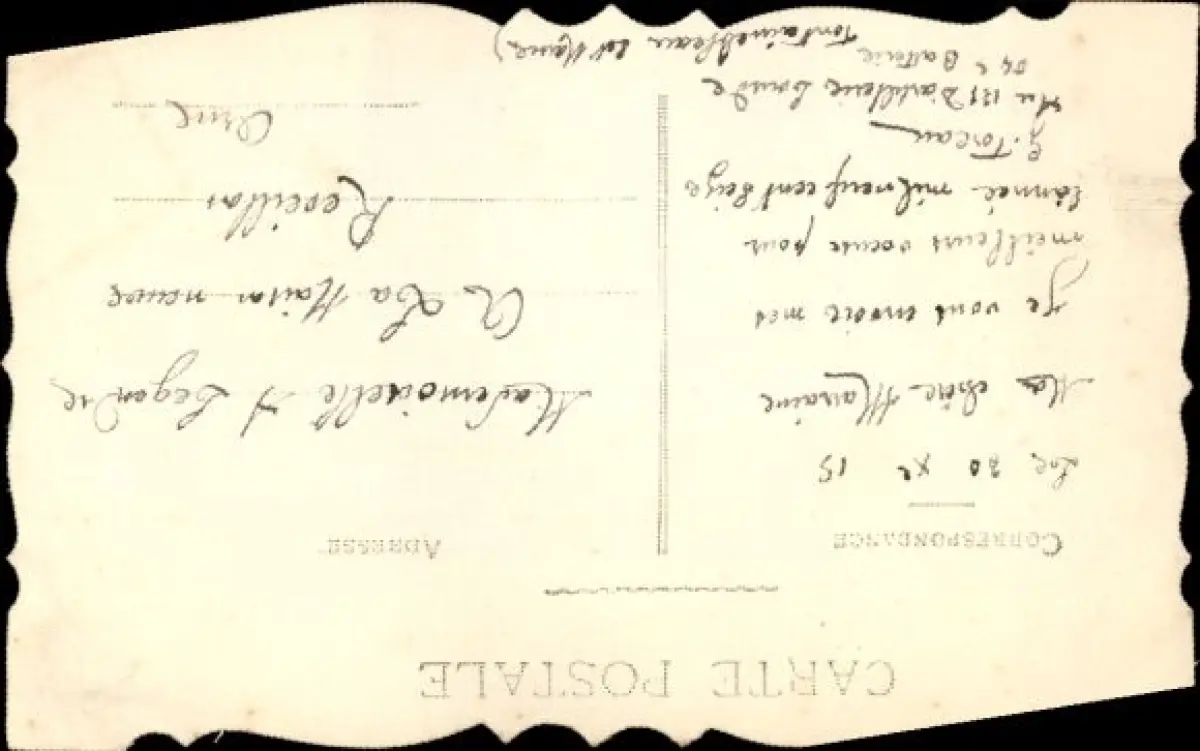 CARTE POSTALE
CORRESPONDANCE
Le 30 Xe 15
Ma chère Marraine
Je vous envoie mes
meilleurs voeux pour
l'année mil neuf cent seize
G. Toreau
Au 121 D'artillerie Lourde
Batterie
Fontainebleau
ADRESSE
Mademoiselle A Legendre
A La Maison neuve
Reveillon
Orne